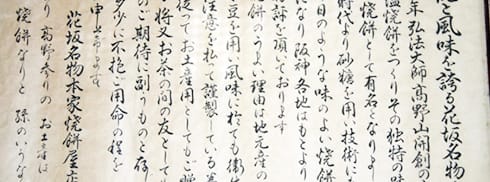 と風味を誇る花坂名物
年弘法大師高野山開創の
塩焼餅をつくりその独特の味
焼餅として有名となりま
時代より砂糖を用い技術に
日のような味のよい焼餅
なり阪神各地はもとより
好評を頂いております
焼餅のうまい理由は地元産の
豆を用い風味に於ても衛生
注意を払って謹製している
お土産用としてもご贈
将又お茶の間の友として
のご期待に副うものと存
多少に不拘ご用命の程を
申上げます
花坂名物本家焼餅屋店
り 高野参りの お土産は
焼餅なりと 孫のいうな